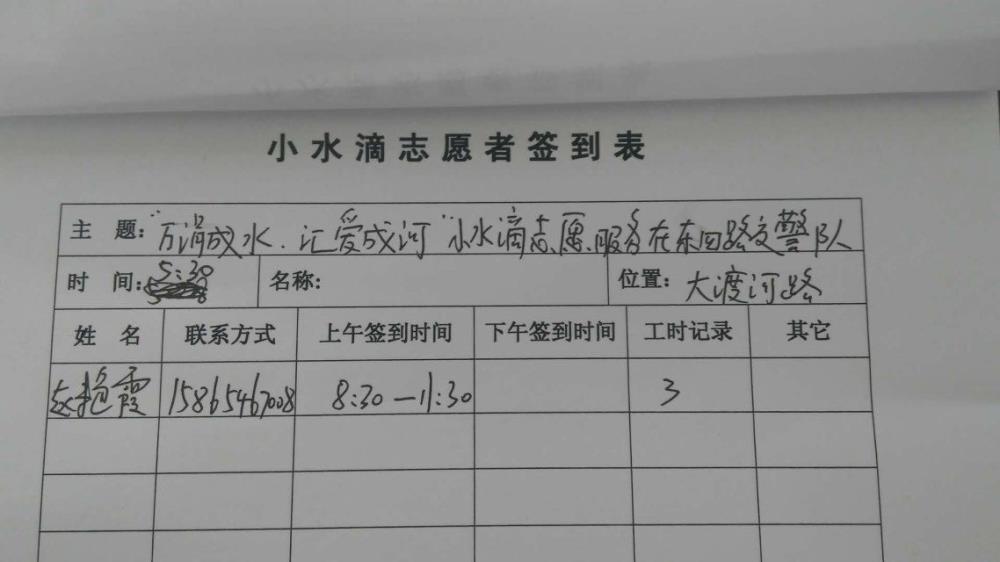 小水滴志愿者签到表
主 题：“万涓成水.汇爱成河”小水滴志愿服务在东回路交警队
时 间：5:30 名称： 位置：大渡河路
姓 名 联系方式 上午签到时间 下午签到时间 工时记录 其它
赵艳霞 15865467008 8:30—11:30 3